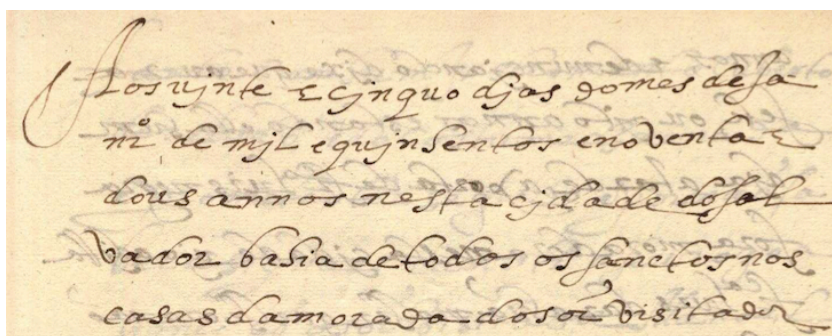 Aos vinte e cinquo djas do mes de Ja
nrº de mjl e quinsentos e noventa e
dous annos nesta cjdade do Sal
vador bahia de todos os sanctos nas
casas da morada do sor visitador